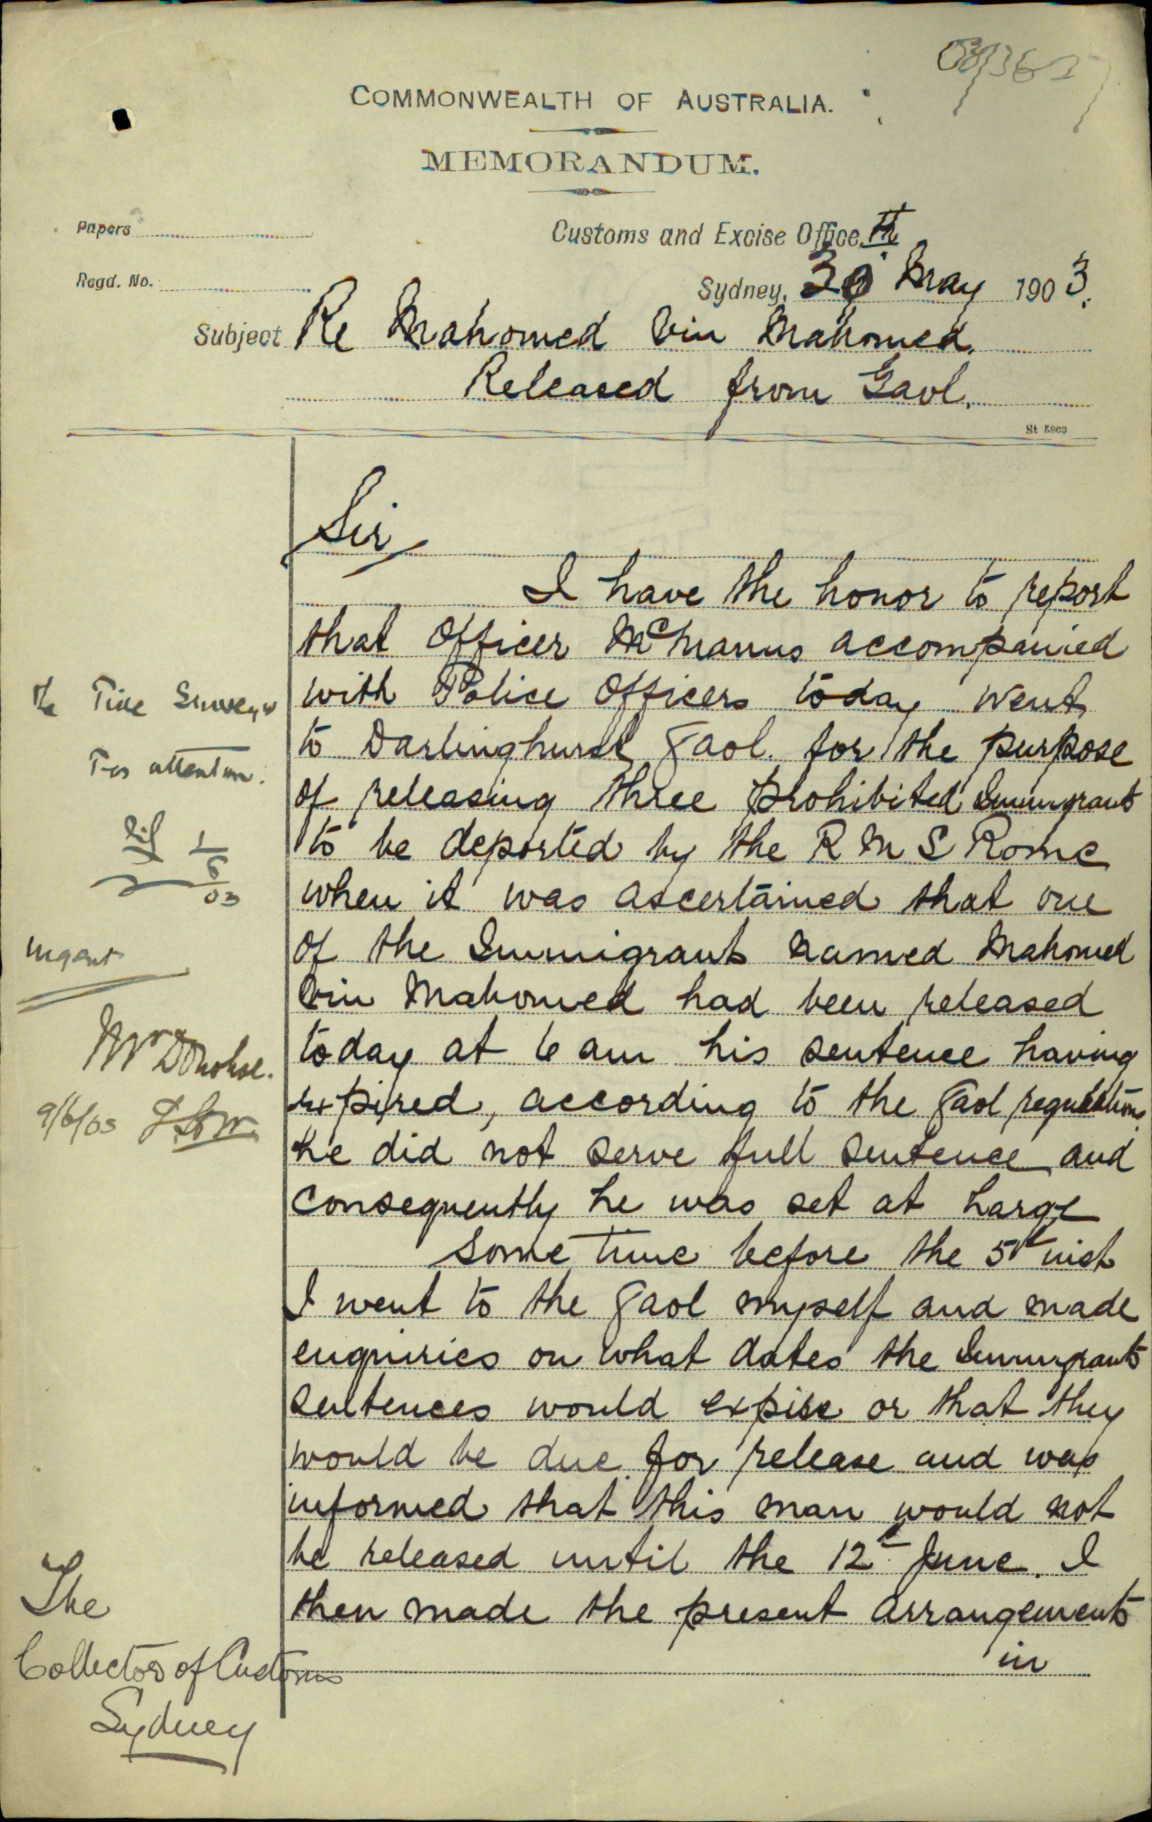 COMMONWEALTH OF AUSTRALIA.
MEMORANDUM.
Papers
Customs and Excise Office,
Regd. No.
Sydney, 30th May 1903.
Subject Re Mahomed bin Mahomed.
Released from Gaol.
Sir
I have the honor to report
that Officer McManus accompanied
with Police Officers today went
to Darlinghurst Gaol for the purpose
of releasing three prohibited Immigrants
to be deported by the R M S Rome
when it was ascertained that one
of the Immigrants named Mahomed
bin Mahomed had been released
today at 6 am his sentence having
expired, according to the Gaol regulations
he did not serve full sentence and
consequently he was set at large
Some time before the 5th inst
I went to the Gaol myself and made
enquiries on what dates the Immigrants
sentences would expire or that they
would be due for release and was
informed that this man would not
be released until the 12th June. I
then made the present arrangements
in
The Tide Surveyor
For attention.
1/6/03
Urgent
Mr Donohoe.
9/6/03
The
Collector of Customs
Sydney